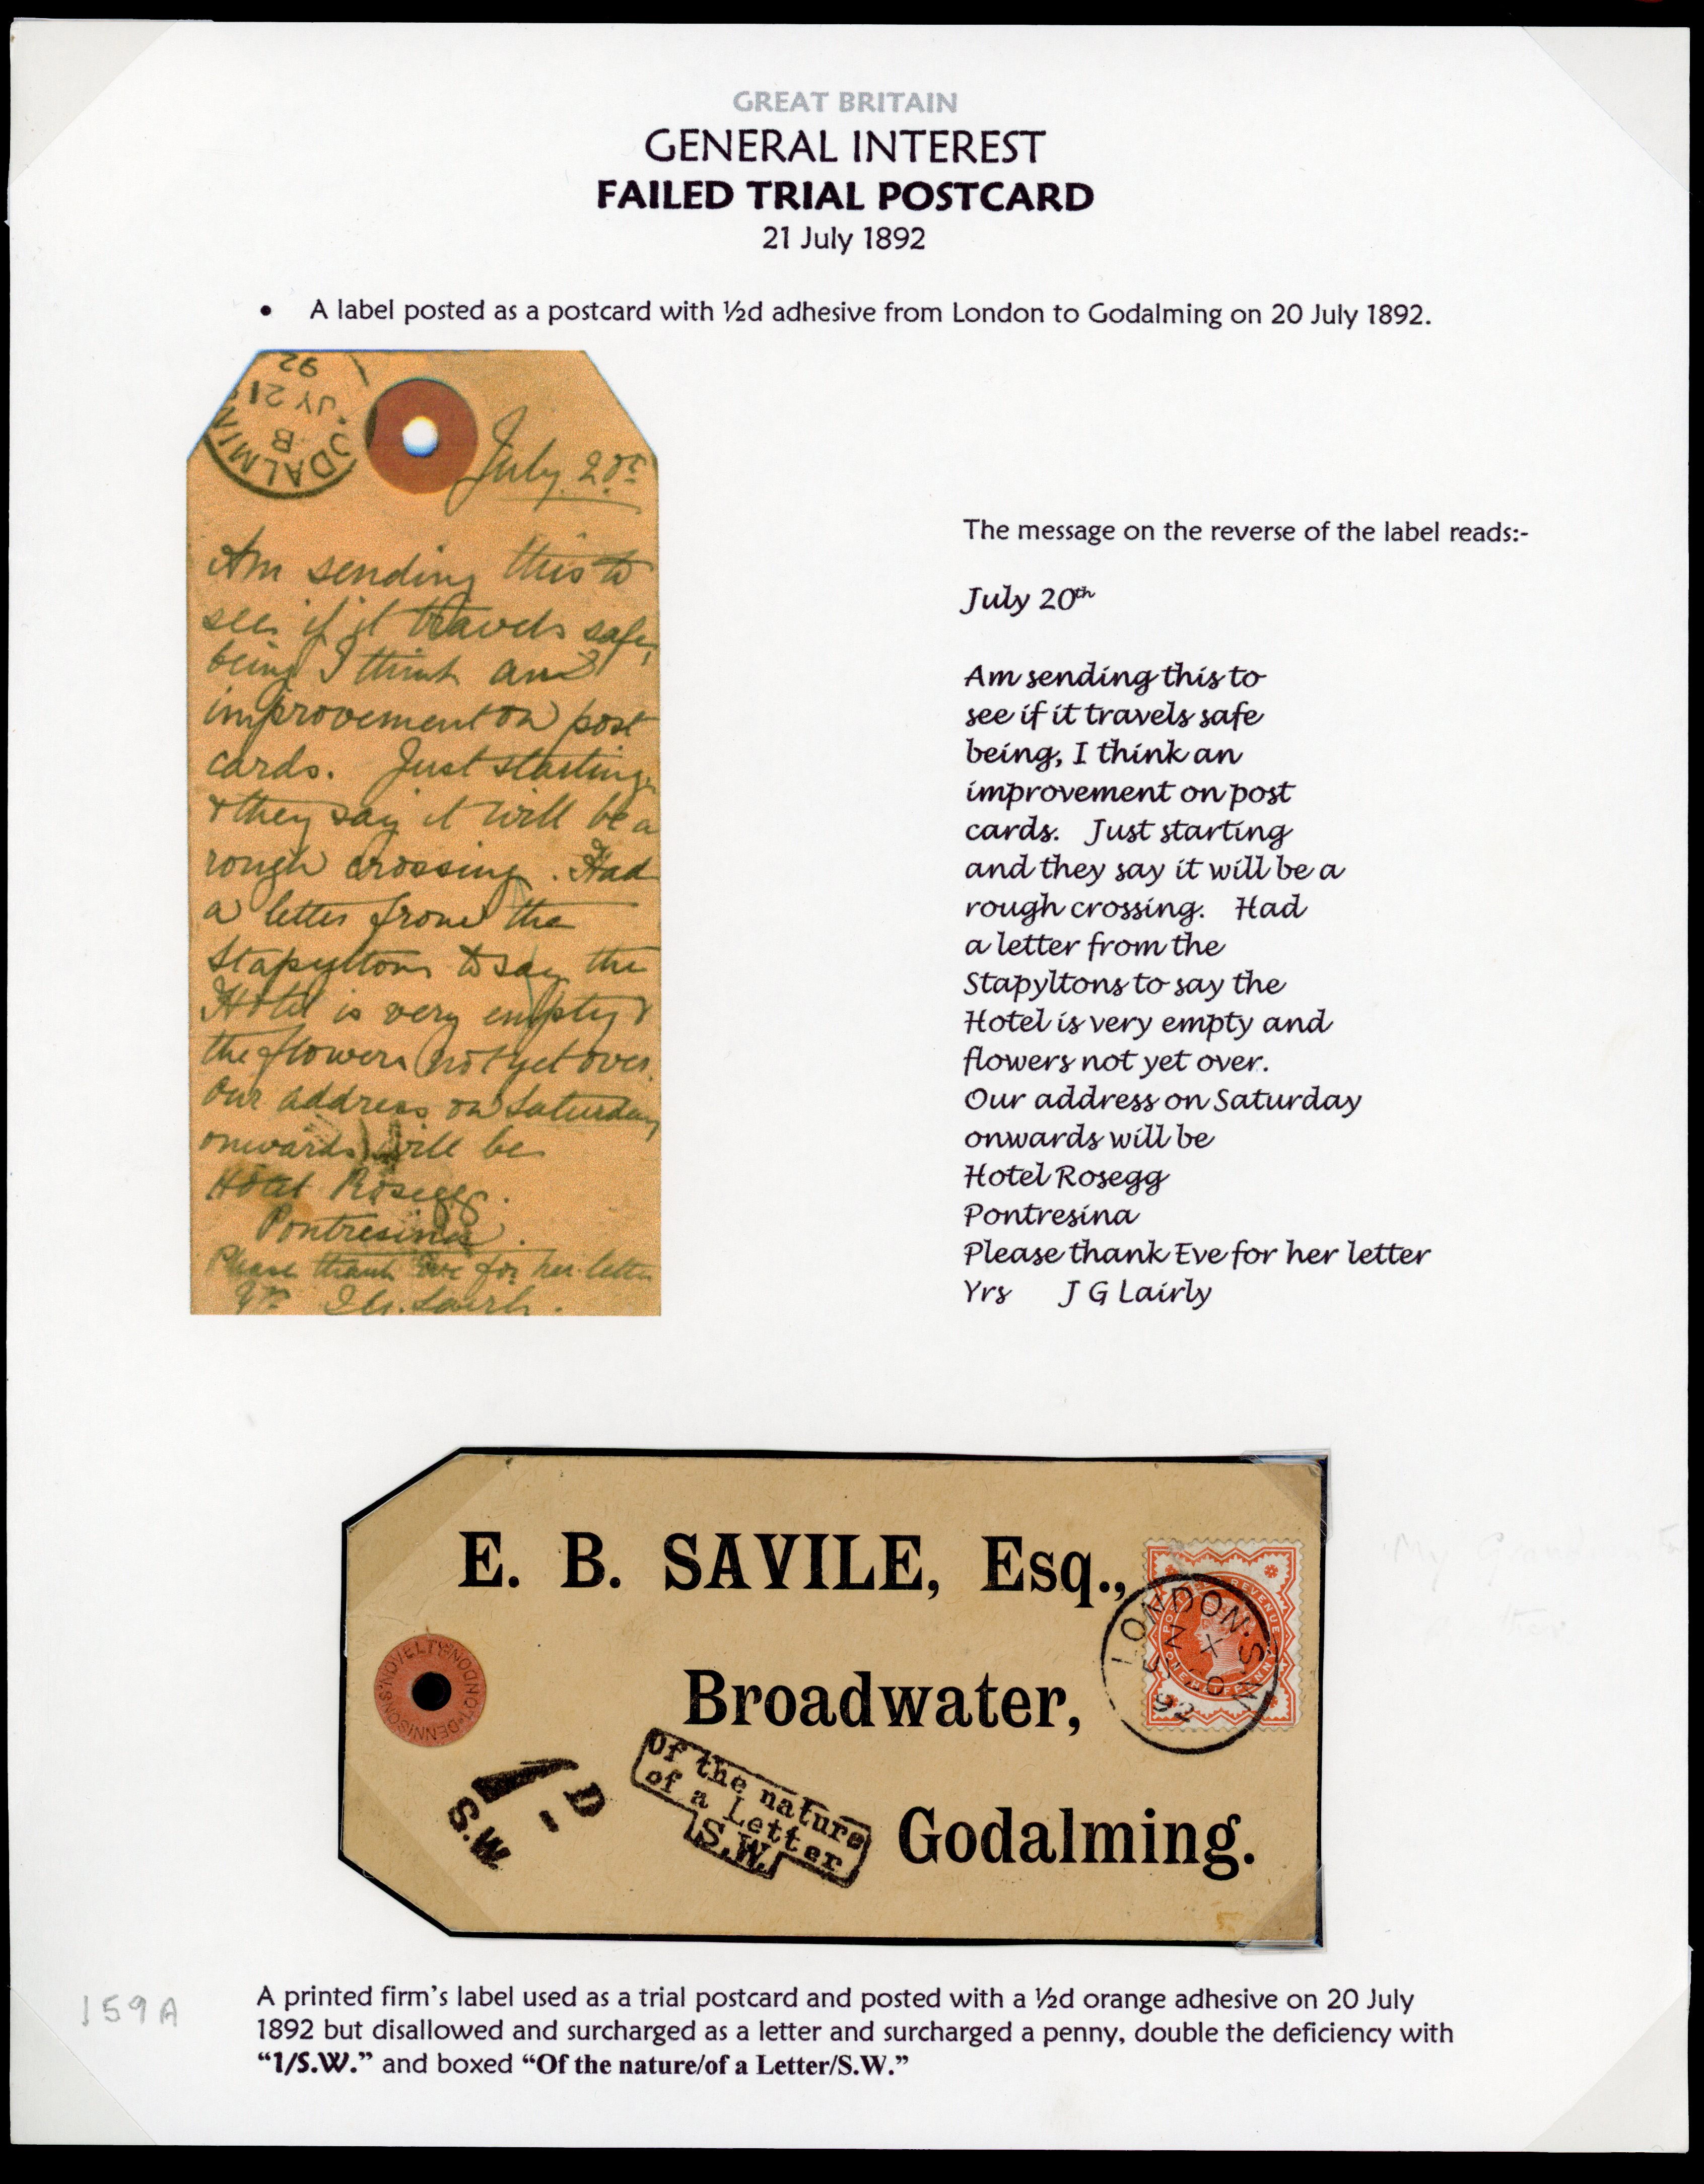 GREAT BRITAIN
GENERAL INTEREST
FAILED TRIAL POSTCARD
21 July 1892
• A label posted as a postcard with ½d adhesive from London to Godalming on 20 July 1892.
92
JY 21
B
ODALMIN
July 20th
Am sending this to
see if it travels safe,
being I think an
improvement on post
cards. Just starting
& they say it will be a
rough crossing. Had
a letter from the
Stapyltons to say the
Hotel is very empty &
the flowers not yet over.
Our address on Saturday
onwards will be
Hotel Rosegg.
Pontresina.
Please thank Eve for her letter
Yrs
The message on the reverse of the label reads:-
July 20th
Am sending this to
see if it travels safe
being, I think an
improvement on post
cards. Just starting
and they say it will be a
rough crossing. Had
a letter from the
Stapyltons to say the
Hotel is very empty and
flowers not yet over.
Our address on Saturday
onwards will be
Hotel Rosegg
Pontresina
Please thank Eve for her letter
Yrs J G Lairly
E. B. SAVILE, Esq.,
Broadwater,
Godalming.
LONDON. S.W
X
92
POSTAGE & REVENUE
ONE HALFPENNY
DENNISON'S NOVELTY LONDON
1 D
S.W.
Of the nature
of a Letter
S.W.
My
159A
A printed firm's label used as a trial postcard and posted with a ½d orange adhesive on 20 July
1892 but disallowed and surcharged as a letter and surcharged a penny, double the deficiency with
“1/S.W.” and boxed “Of the nature/of a Letter/S.W.”